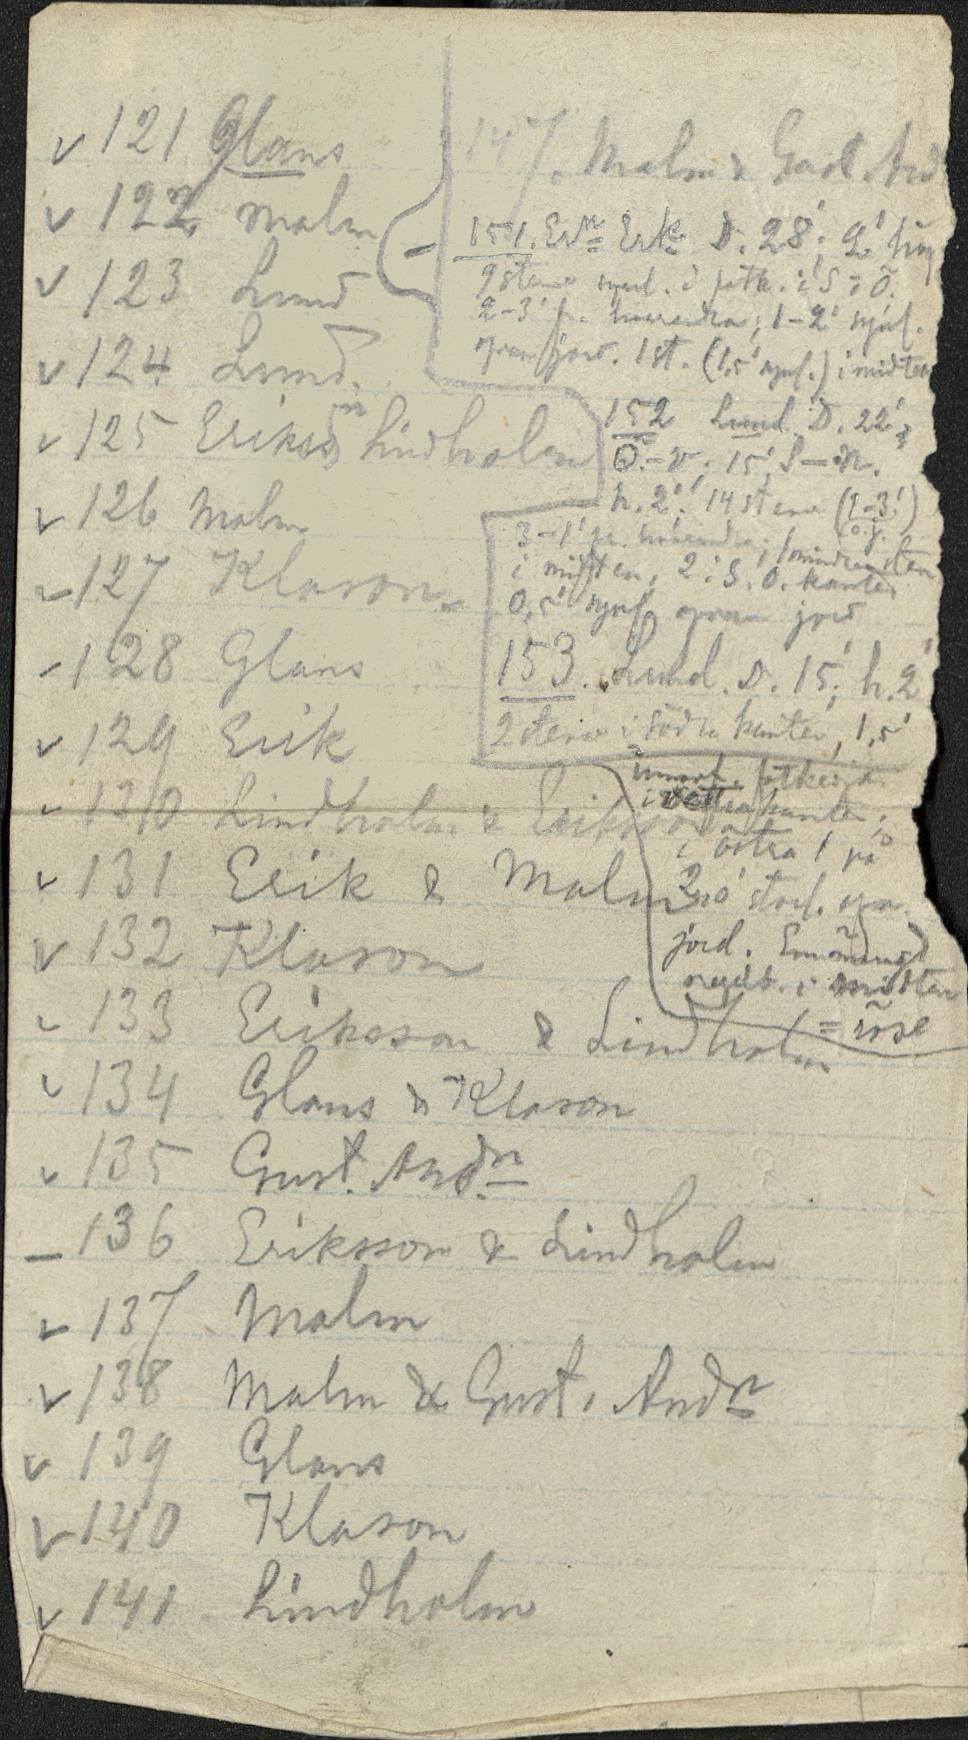 v 121 Glans
v 122 Malm
v 123 Lund
v 124 Lund.
v 125 Eriksson Lindholm
v 126 Malm
127 Klason
128 Glans
v 129 Erik
130 Lindholm & Eriksson
v 131 Erik & Malm
v 132 Klason
v 133 Eriksson & Lindholm
v 134 Glans & Klason
v 135 Gust. And.n
– 136 Eriksson & Lindholm
v 137 Malm
v 138 Malm & Gust. And.n
v 139 Glans
v 140 Klason
v 141 Lindholm
147. Malm & Gust. And
151. Er.n Erk. D. 28'; 2' hög
9 stenar synl. i fotk. i S i Ö.
2-3' fr. hvarandra; 1-2' synl.
ofvan jord. 1 st. (1,5' synl.) i midten
152 Lund. D. 22';
Ö.-V.; 15' S-N.
h. 2'. 14 stena (1-3')
o.j.
3-1' fr. hvarandra; 1 mindre sten
i midten, 2 i S.O. kanten
0,5' synl. ofvan jord
153. Lund. D. 15'; h. 2'
2 stena i södra kanten, 1,5'
i västra kanten;
i östra 1 på
2,0' storl.
jord.
i midten
= röse